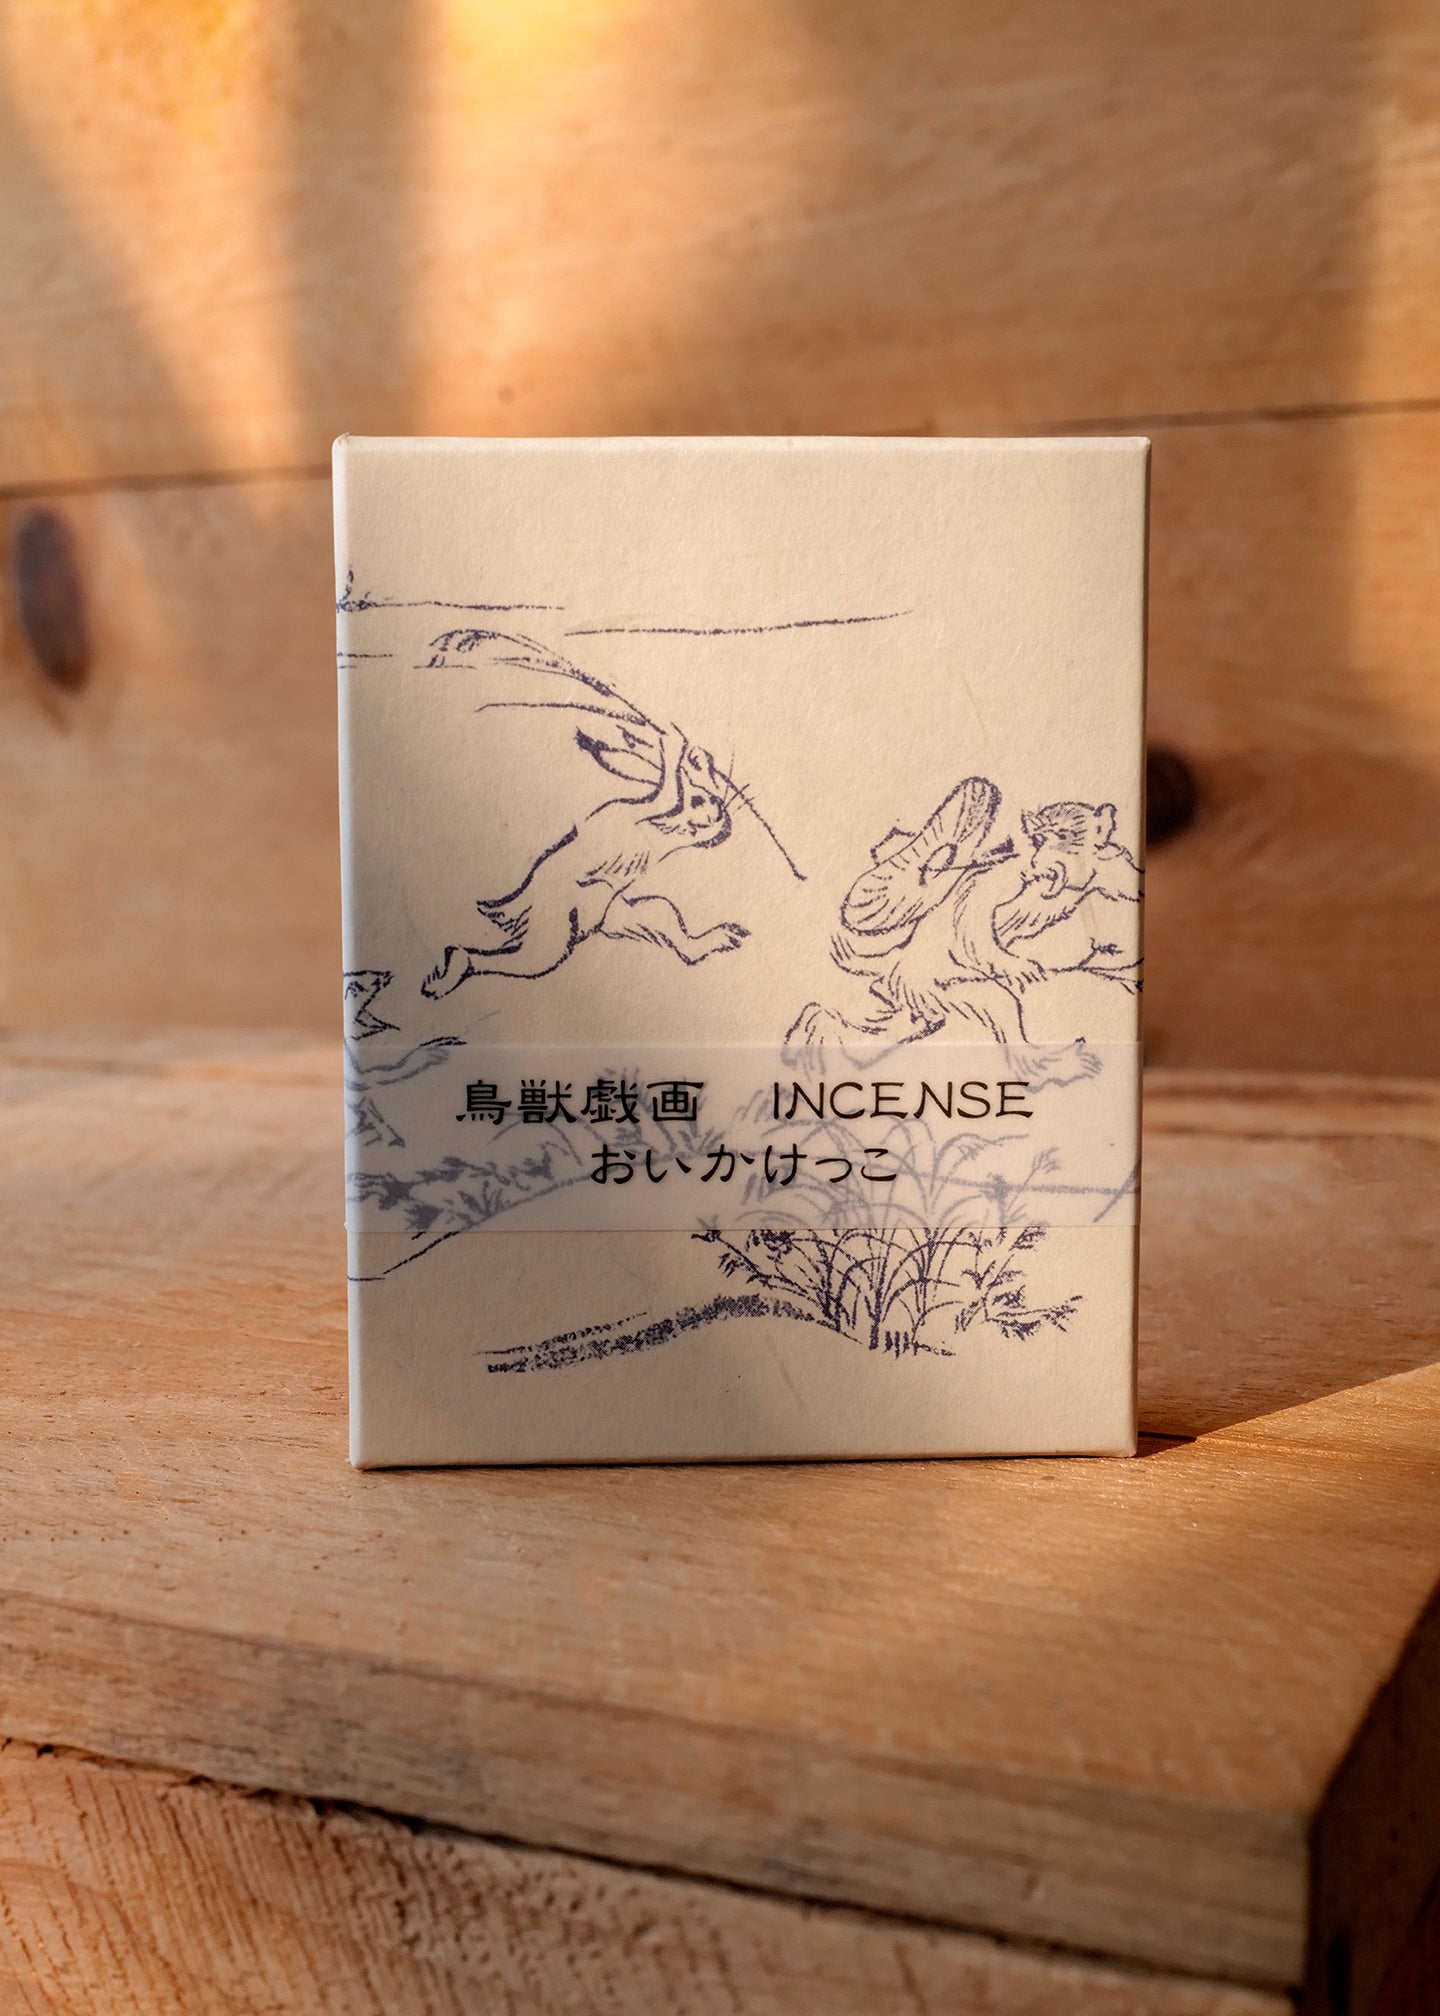 鳥獣戯画　INCENSE
おいかけっこ